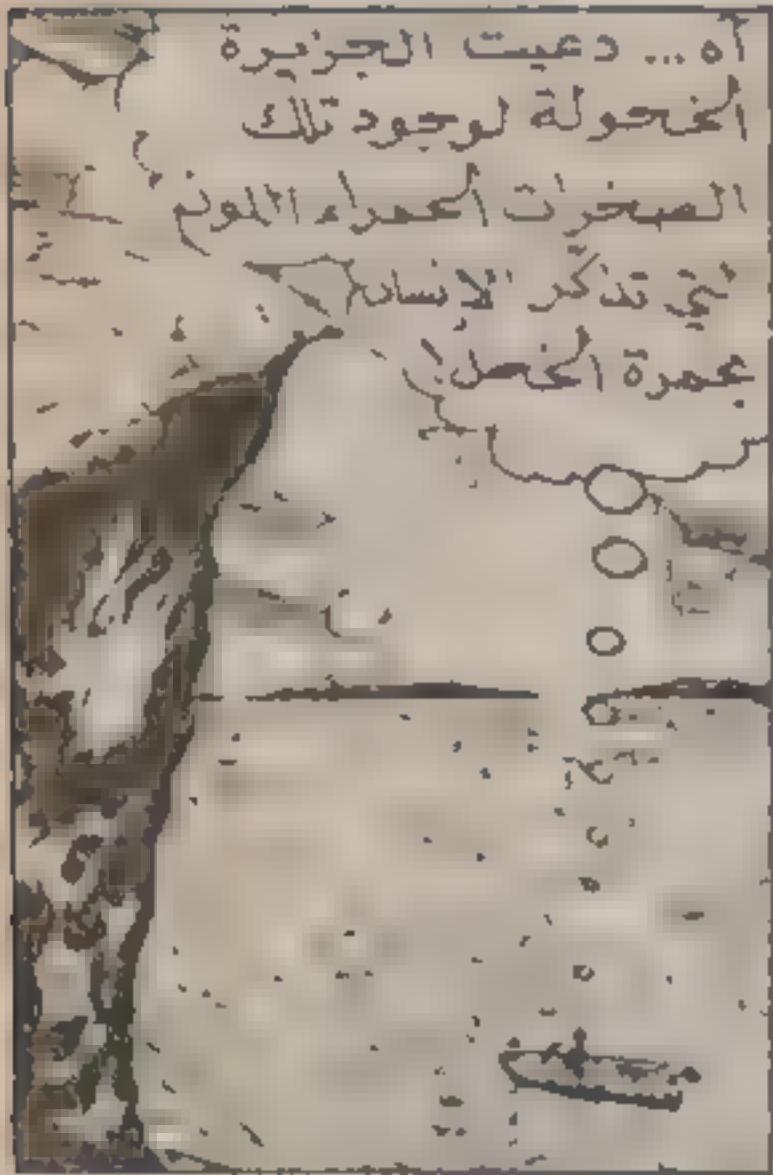 آه... دعيت الجزيرة
الخجولة لوجود تلك
الصخرات الحمراء اللون
التي تذكّر الإنسان
بحمرة الخجل!